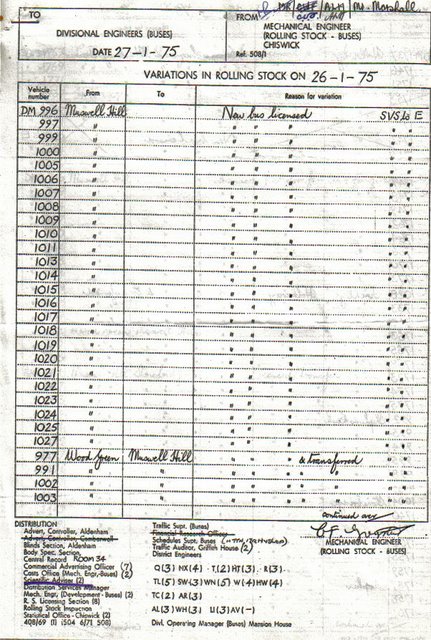 TO
FROM
Mr. Marshall
MECHANICAL ENGINEER
(ROLLING STOCK - BUSES)
CHISWICK
DIVISIONAL ENGINEERS (BUSES)
DATE 27-1-75
Ref. 508/1
VARIATIONS IN ROLLING STOCK ON 26-1-75
Vehicle number From To Reason for variation
DM 996 Muswell Hill New bus licensed SVS to E
997 " " " " " "
999 " " " " " "
1000 " " " " " "
1005 " " " " " "
1006 " " " " " "
1007 " " " " " "
1008 " " " " " "
1009 " " " " " "
1010 " " " " " "
1011 " " " " " "
1013 " " " " " "
1014 " " " " " "
1015 " " " " " "
1016 " " " " " "
1017 " " " " " "
1018 " " " " " "
1019 " " " " " "
1020 " " " " " "
1021 " " " " " "
1022 " " " " " "
1023 " " " " " "
1024 " " " " " "
1025 " " " " " "
1027 " " " " " "
977 Wood Green Muswell Hill " " " & transferred " "
991 " " " " " " " " " "
1002 " " " " " " " " " "
1003 " " " " " " " " " "
continued over
MECHANICAL ENGINEER
(ROLLING STOCK - BUSES)
DISTRIBUTION
Advert. Controller, Aldenham
Advert. Controller, Camberwell
Blinds Section, Aldenham
Body Spec. Section
Central Record ROOM 34
Commercial Advertising Officer (7)
Costs Office (Mech. Engr. Buses) (2)
Scientific Adviser (2)
Distribution Services Manager
Mech. Engr. (Development - Buses) (2)
R. S. Licensing Section (8)
Rolling Stock Inspection
Statistical Office - Chiswick (2)
408/69 (1) (504 6/71 508)
Traffic Supt. (Buses)
Financial Research Officer
Schedules Supt. Buses
Traffic Auditor, Griffith House (2)
District Engineers
Q(3) HX(4) T(2) HT(3) R(3)
TL(5) SW(3) WN(5) W(4) HW(4)
TC(2) AR(3)
AL(3) WH(3) U(3) AV(-)
Divl. Operating Manager (Buses) Mansion House